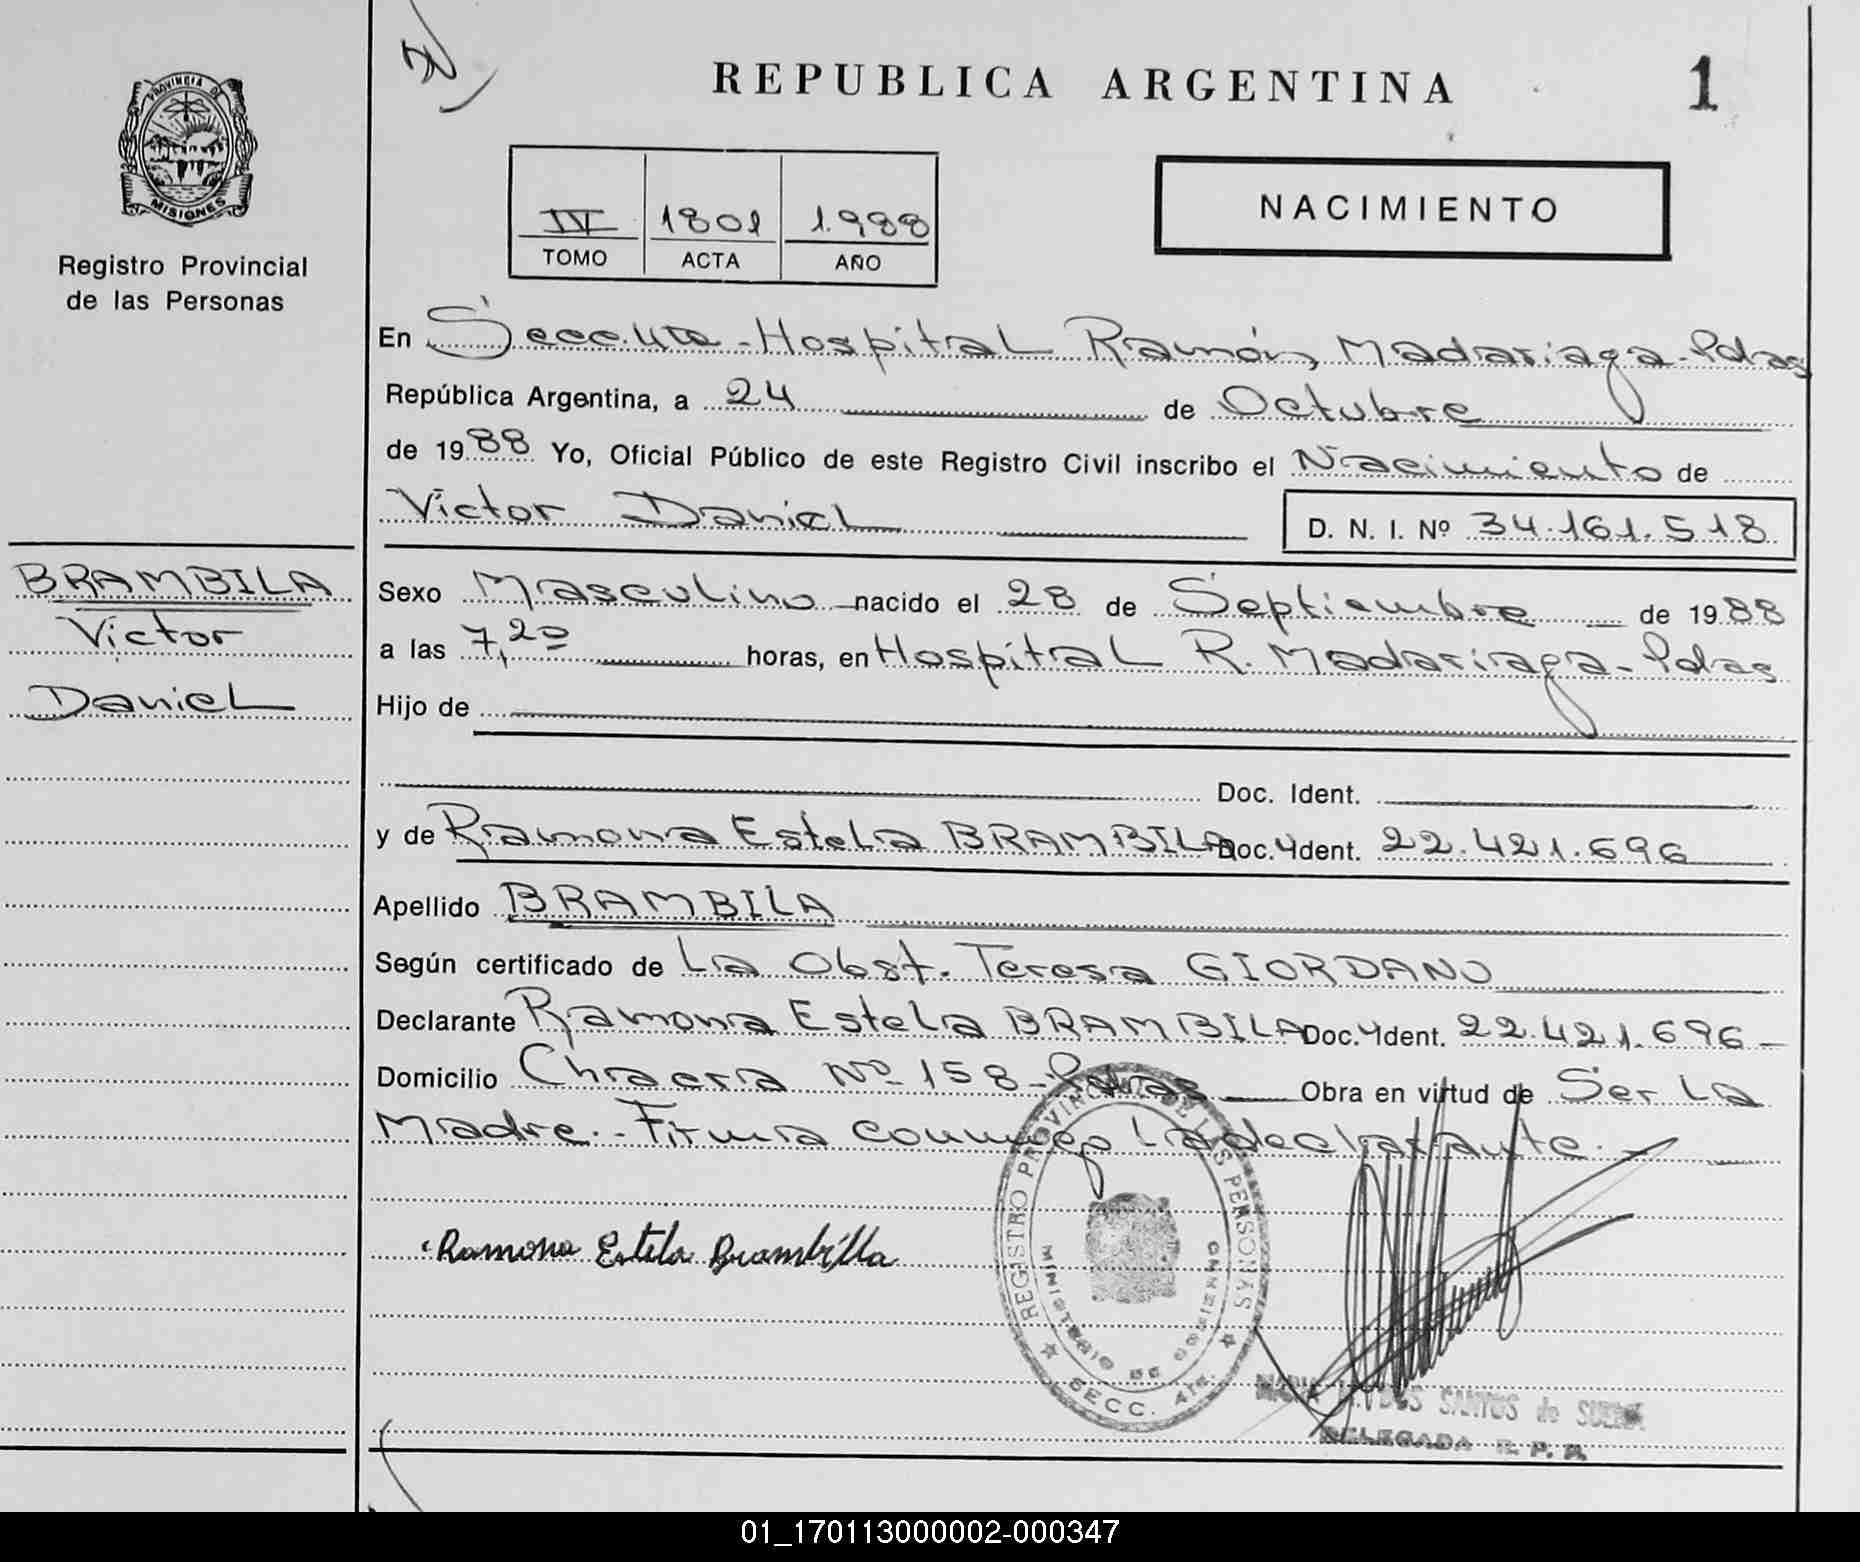 REPUBLICA ARGENTINA
1
PROVINCIA DE
MISIONES
Registro Provincial
de las Personas
IV 1801 1.988
TOMO ACTA AÑO
NACIMIENTO
En Hospital Ramón Madariaga - Pdas
República Argentina, a 24 de Octubre
de 1988 Yo, Oficial Público de este Registro Civil inscribo el Nacimiento de
Victor Daniel
D. N. I. Nº 34.161.518
BRAMBILA
Victor
Daniel
Sexo Masculino nacido el 28 de Septiembre de 1988
a las 7,20 horas, en Hospital R. Madariaga - Pdas
Hijo de
Doc. Ident.
y de Ramona Estela BRAMBILA Doc. Ident. 22.421.696
Apellido BRAMBILA
Según certificado de La Obst. Teresa GIORDANO
Declarante Ramona Estela BRAMBILA Doc. Ident. 22.421.696 -
Domicilio Chacra Nº 158 - Pdas Obra en virtud de Ser La
Madre. - Firma conmigo La declarante. -
Ramona Estela Brambilla
REGISTRO PROVINCIAL DE LAS PERSONAS
MINISTERIO DE GOBIERNO
SECC.
DOS SANTOS de
DELEGADA R. P. P.
01_170113000002-000347